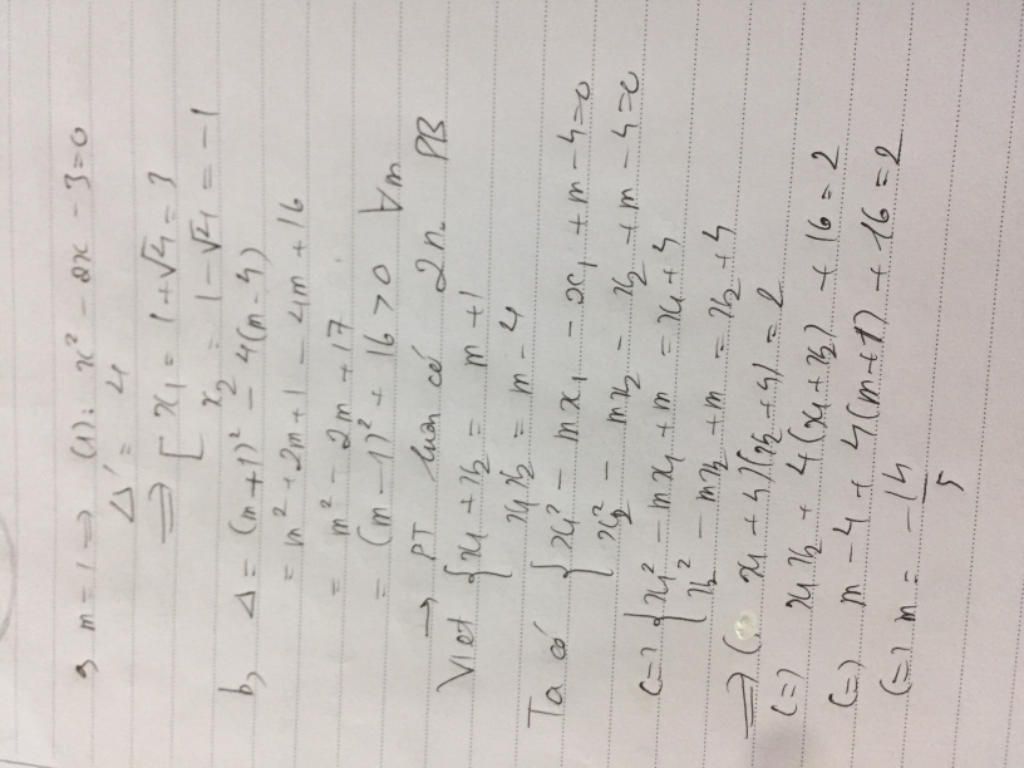 a, m = 1 => (1): x² - 2x - 3 = 0
Δ' = 4
=> [ x₁ = 1 + √4 = 3
x₂ = 1 - √4 = -1
b, Δ = (m+1)² - 4(m-4)
= m² + 2m + 1 - 4m + 16
= m² - 2m + 17
= (m-1)² + 16 > 0 ∀m
→ PT luôn có 2 n₀ PB
Viet { x₁ + x₂ = m + 1
x₁x₂ = m - 4
Ta có { x₁² - mx₁ - x₁ + m - 4 = 0
x₂² - mx₂ - x₂ + m - 4 = 0
<=> { x₁² - mx₁ + m = x₁ + 4
x₂² - mx₂ + m = x₂ + 4
=> (x₁ + 4)(x₂ + 4) = 2
<=> x₁x₂ + 4(x₁ + x₂) + 16 = 2
<=> m - 4 + 4(m+1) + 16 = 2
<=> m = -14/5